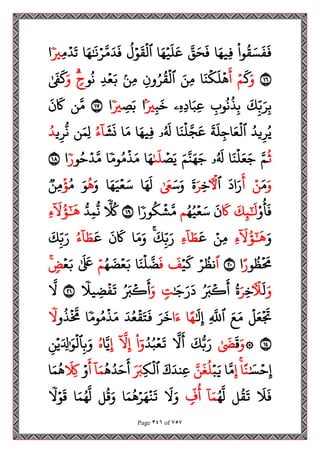 فَفَسَقُوا۟ فِيهَا فَحَقَّ عَلَيْهَا ٱلْقَوْلُ فَدَمَّرْنَـٰهَا تَدْمِيرًا
١٦ وَكَمْ أَهْلَكْنَا مِنَ ٱلْقُرُونِ مِنۢ بَعْدِ نُوحٍ ۗ وَكَفَىٰ
بِرَبِّكَ بِذُنُوبِ عِبَادِهِۦ خَبِيرًۢا بَصِيرًا ١٧ مَّن كَانَ
يُرِيدُ ٱلْعَاجِلَةَ عَجَّلْنَا لَهُۥ فِيهَا مَا نَشَآءُ لِمَن نُّرِيدُ
ثُمَّ جَعَلْنَا لَهُۥ جَهَنَّمَ يَصْلَىٰهَا مَذْمُومًا مَّدْحُورًا ١٨
وَمَنْ أَرَادَ ٱلْـَٔاخِرَةَ وَسَعَىٰ لَهَا سَعْيَهَا وَهُوَ مُؤْمِنٌ
فَأُو۟لَـٰٓئِكَ كَانَ سَعْيُهُم مَّشْكُورًا ١٩ كُلًّا نُّمِدُّ هَـٰٓؤُلَآءِ
وَهَـٰٓؤُلَآءِ مِنْ عَطَآءِ رَبِّكَ ۚ وَمَا كَانَ عَطَآءُ رَبِّكَ
مَحْظُورًا ٢٠ ٱنظُرْ كَيْفَ فَضَّلْنَا بَعْضَهُمْ عَلَىٰ بَعْضٍ ۚ
وَلَلْـَٔاخِرَةُ أَكْبَرُ دَرَجَـٰتٍ وَأَكْبَرُ تَفْضِيلًا ٢١ لَّا
تَجْعَلْ مَعَ ٱللَّهِ إِلَـٰهًا ءَاخَرَ فَتَقْعُدَ مَذْمُومًا مَّخْذُولًا
٢٢ ۞ وَقَضَىٰ رَبُّكَ أَلَّا تَعْبُدُوٓا۟ إِلَّآ إِيَّاهُ وَبِٱلْوَٰلِدَيْنِ
إِحْسَـٰنًا ۚ إِمَّا يَبْلُغَنَّ عِندَكَ ٱلْكِبَرَ أَحَدُهُمَآ أَوْ كِلَاهُمَا
فَلَا تَقُل لَّهُمَآ أُفٍّ وَلَا تَنْهَرْهُمَا وَقُل لَّهُمَا قَوْلًا
Page ٣٤٦ of ٧٥٧